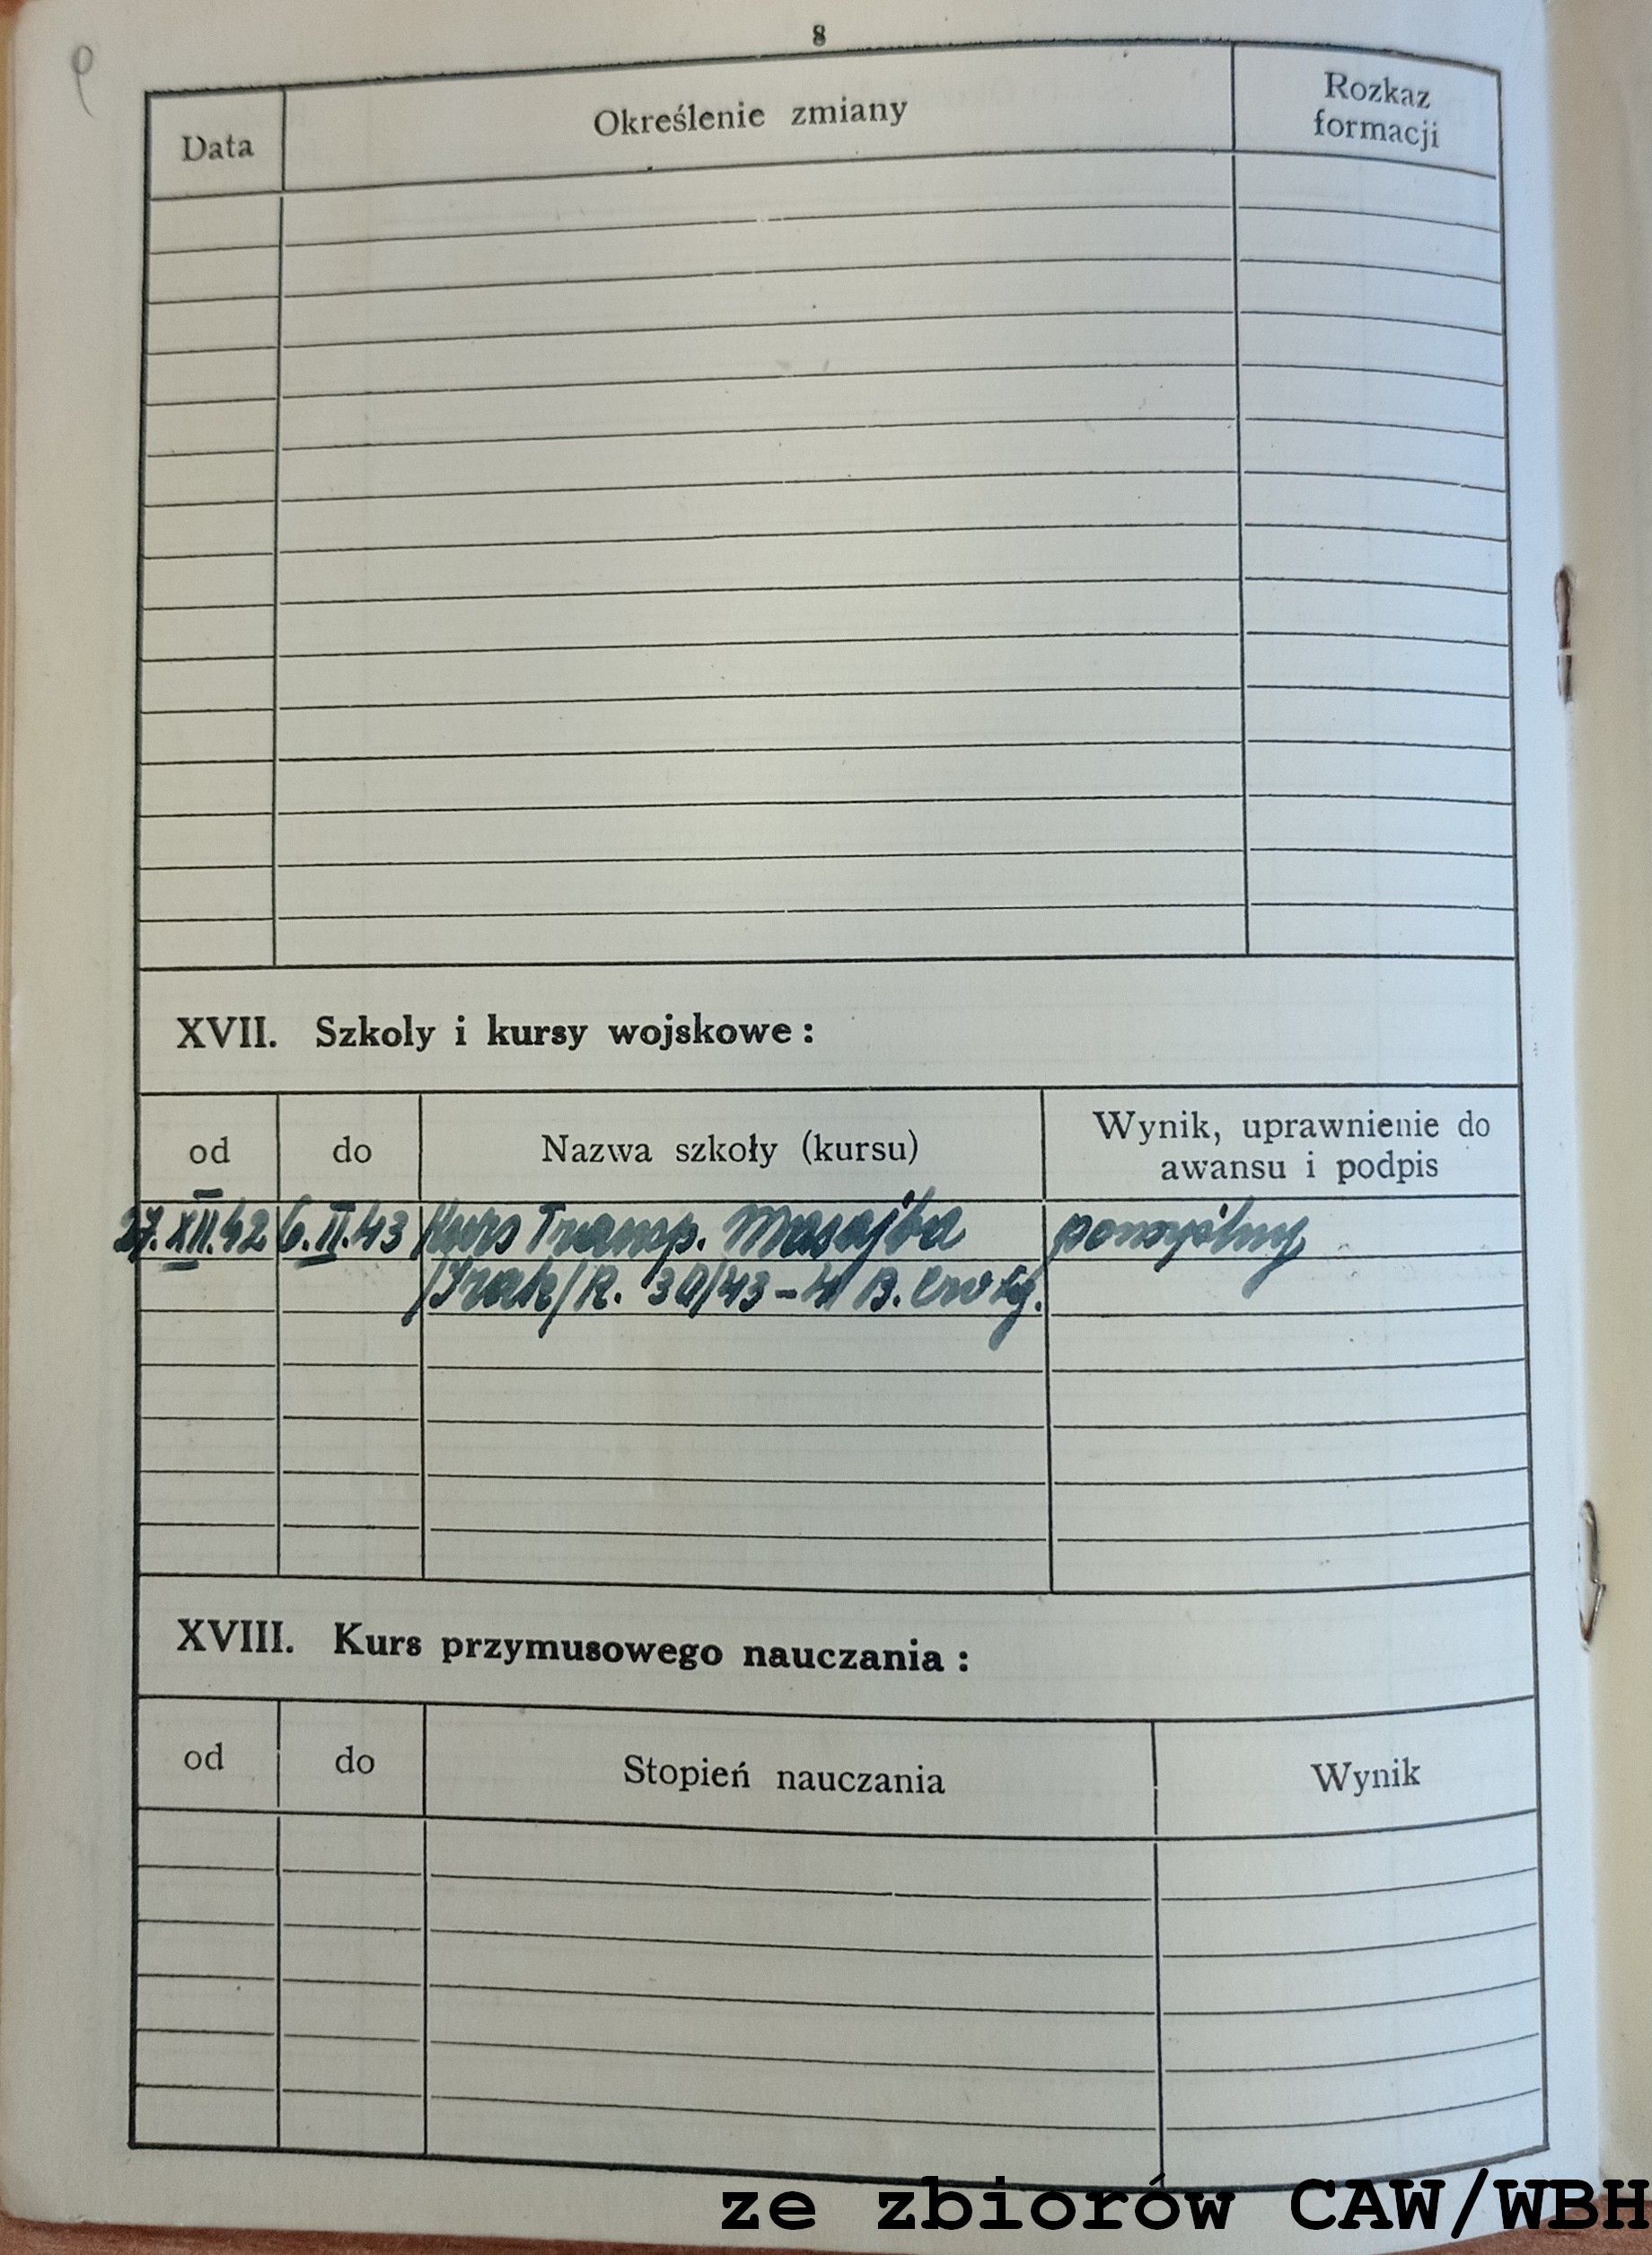 8
Data
Określenie zmiany
Rozkaz
formacji
XVII. Szkoly i kursy wojskowe:
od
do
Nazwa szkoły (kursu)
Wynik, uprawnienie do
awansu i podpis
27.XII.42
6.II.43
Kurs Transp.
pomyślny
/Irak/ R. 30/43 - 4 B.
XVIII. Kurs przymusowego nauczania:
od
do
Stopień nauczania
Wynik
ze zbiorów CAW/WBH